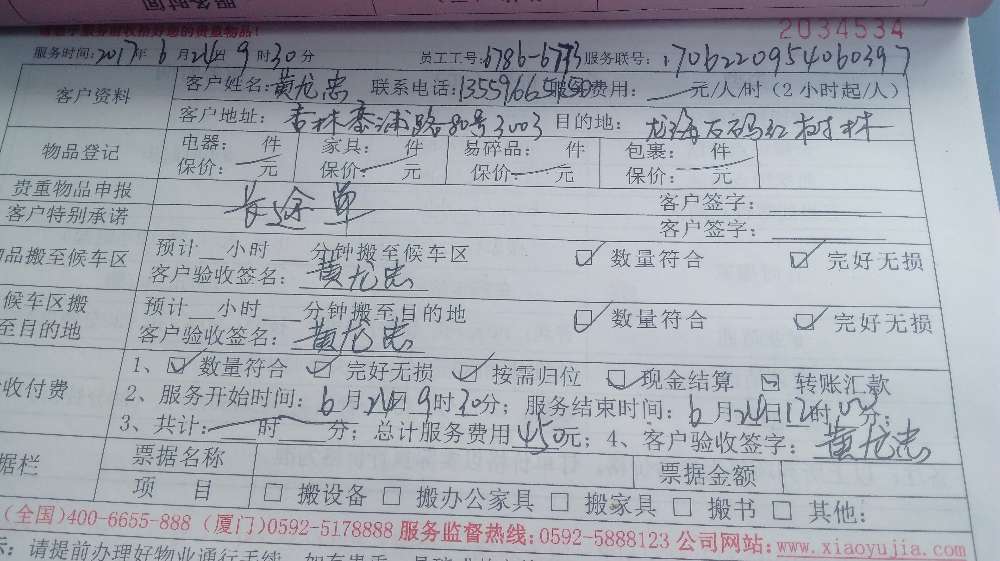 服务时间
请您于服务前收拾好您的贵重物品！
2034534
服务时间：2017年6月24日9时30分 员工工号：6786-6773 服务联号：170622095406039
客户资料 客户姓名：黄龙忠 联系电话： 费用： 元/人/时（2小时起/人）
客户地址：杏林杏滨路80号3003 目的地：龙海石码红树林
物品登记 电器： 件 家具： 件 易碎品： 件 包裹： 件
保价： 元 保价： 元 保价： 元 保价： 元
贵重物品申报 长途单 客户签字：
客户特别承诺 客户签字：
品搬至候车区 预计__小时__分钟搬至候车区 数量符合 完好无损
客户验收签名：黄龙忠
候车区搬 预计__小时__分钟搬至目的地 数量符合 完好无损
至目的地 客户验收签名：黄龙忠
收付费 1、数量符合 完好无损 按需归位 现金结算 转账汇款
2、服务开始时间：6月24日9时30分；服务结束时间：6月24日12时 分；
3、共计：__时__分；总计服务费用450元；4、客户验收签字：黄龙忠
据栏 票据名称 票据金额
项 目 □ 搬设备 □ 搬办公家具 □ 搬家具 □ 搬书 □ 其他：
(全国)400-6655-888 (厦门)0592-5178888 服务监督热线：0592-5888123 公司网站：www.xiaoyujia.com
示：请提前办理好物业通行手续